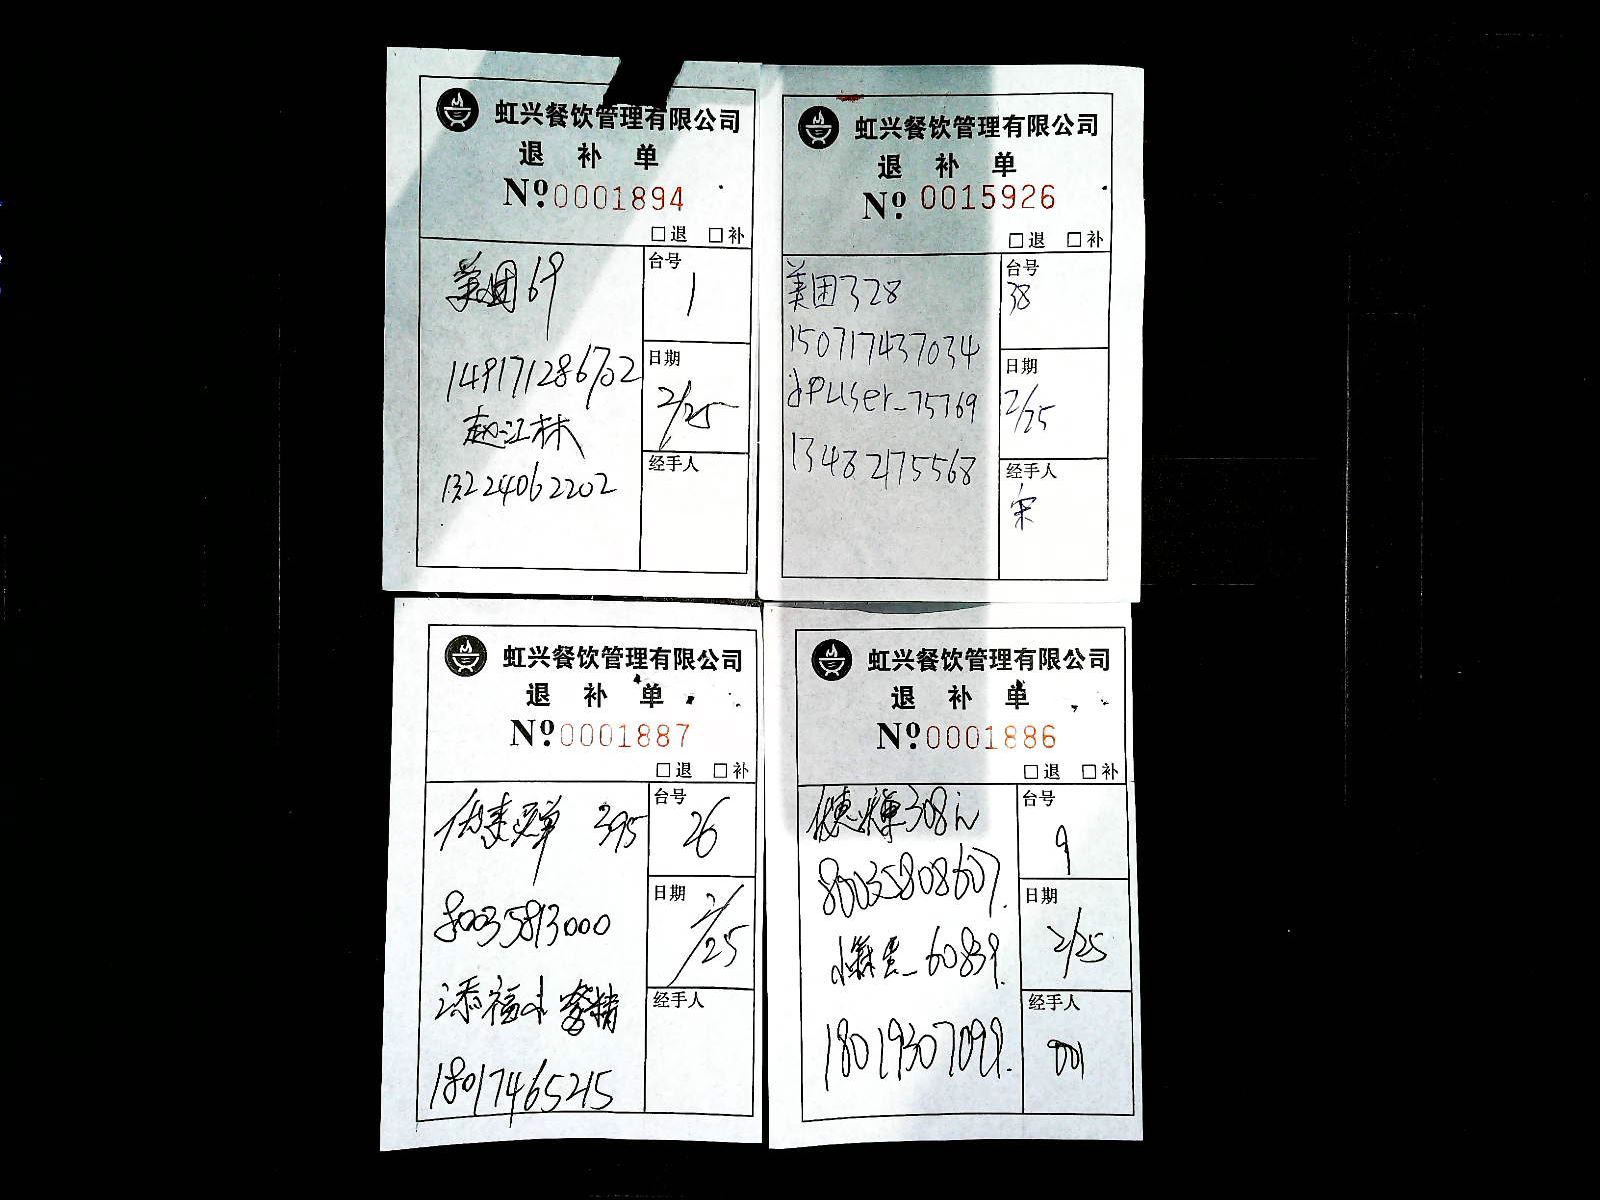 虹兴餐饮管理有限公司
退 补 单
Nº.0001894
□退 □补
美团69
149171286702
赵江林
13224062202
台号
1
日期
2/25
经手人
虹兴餐饮管理有限公司
退 补 单
Nº. 0015926
□退 □补
美团328
150717437034
dpuser_75769
13482175568
台号
38
日期
2/25
经手人
宋
虹兴餐饮管理有限公司
退 补 单
Nº.0001887
□退 □补
优惠买单 395
80035813000
添福小
18017465215
台号
26
日期
2/25
经手人
虹兴餐饮管理有限公司
退 补 单
Nº.0001886
□退 □补
308
80035808607.
_60839.
18019307099.
台号
9
日期
2/25
经手人
001